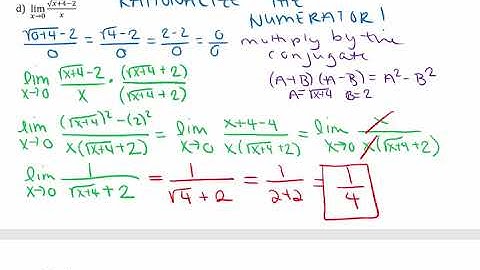 d) lim x→0 (√(x+4)-2)/x RATIONALIZE THE
NUMERATOR!
(√(0+4)-2)/0 = (√4-2)/0 = (2-2)/0 = 0/0 multiply by the
conjugate
lim x→0 (√(x+4)-2)/x · (√(x+4)+2)/(√(x+4)+2) (A+B)(A-B)=A²-B²
A=√(x+4) B=2
lim x→0 ((√(x+4))²-(2)²)/(x(√(x+4)+2)) = lim x→0 (x+4-4)/(x(√(x+4)+2)) = lim x→0 x/(x(√(x+4)+2))
lim x→0 1/(√(x+4)+2) = 1/(√4+2) = 1/(2+2) = 1/4